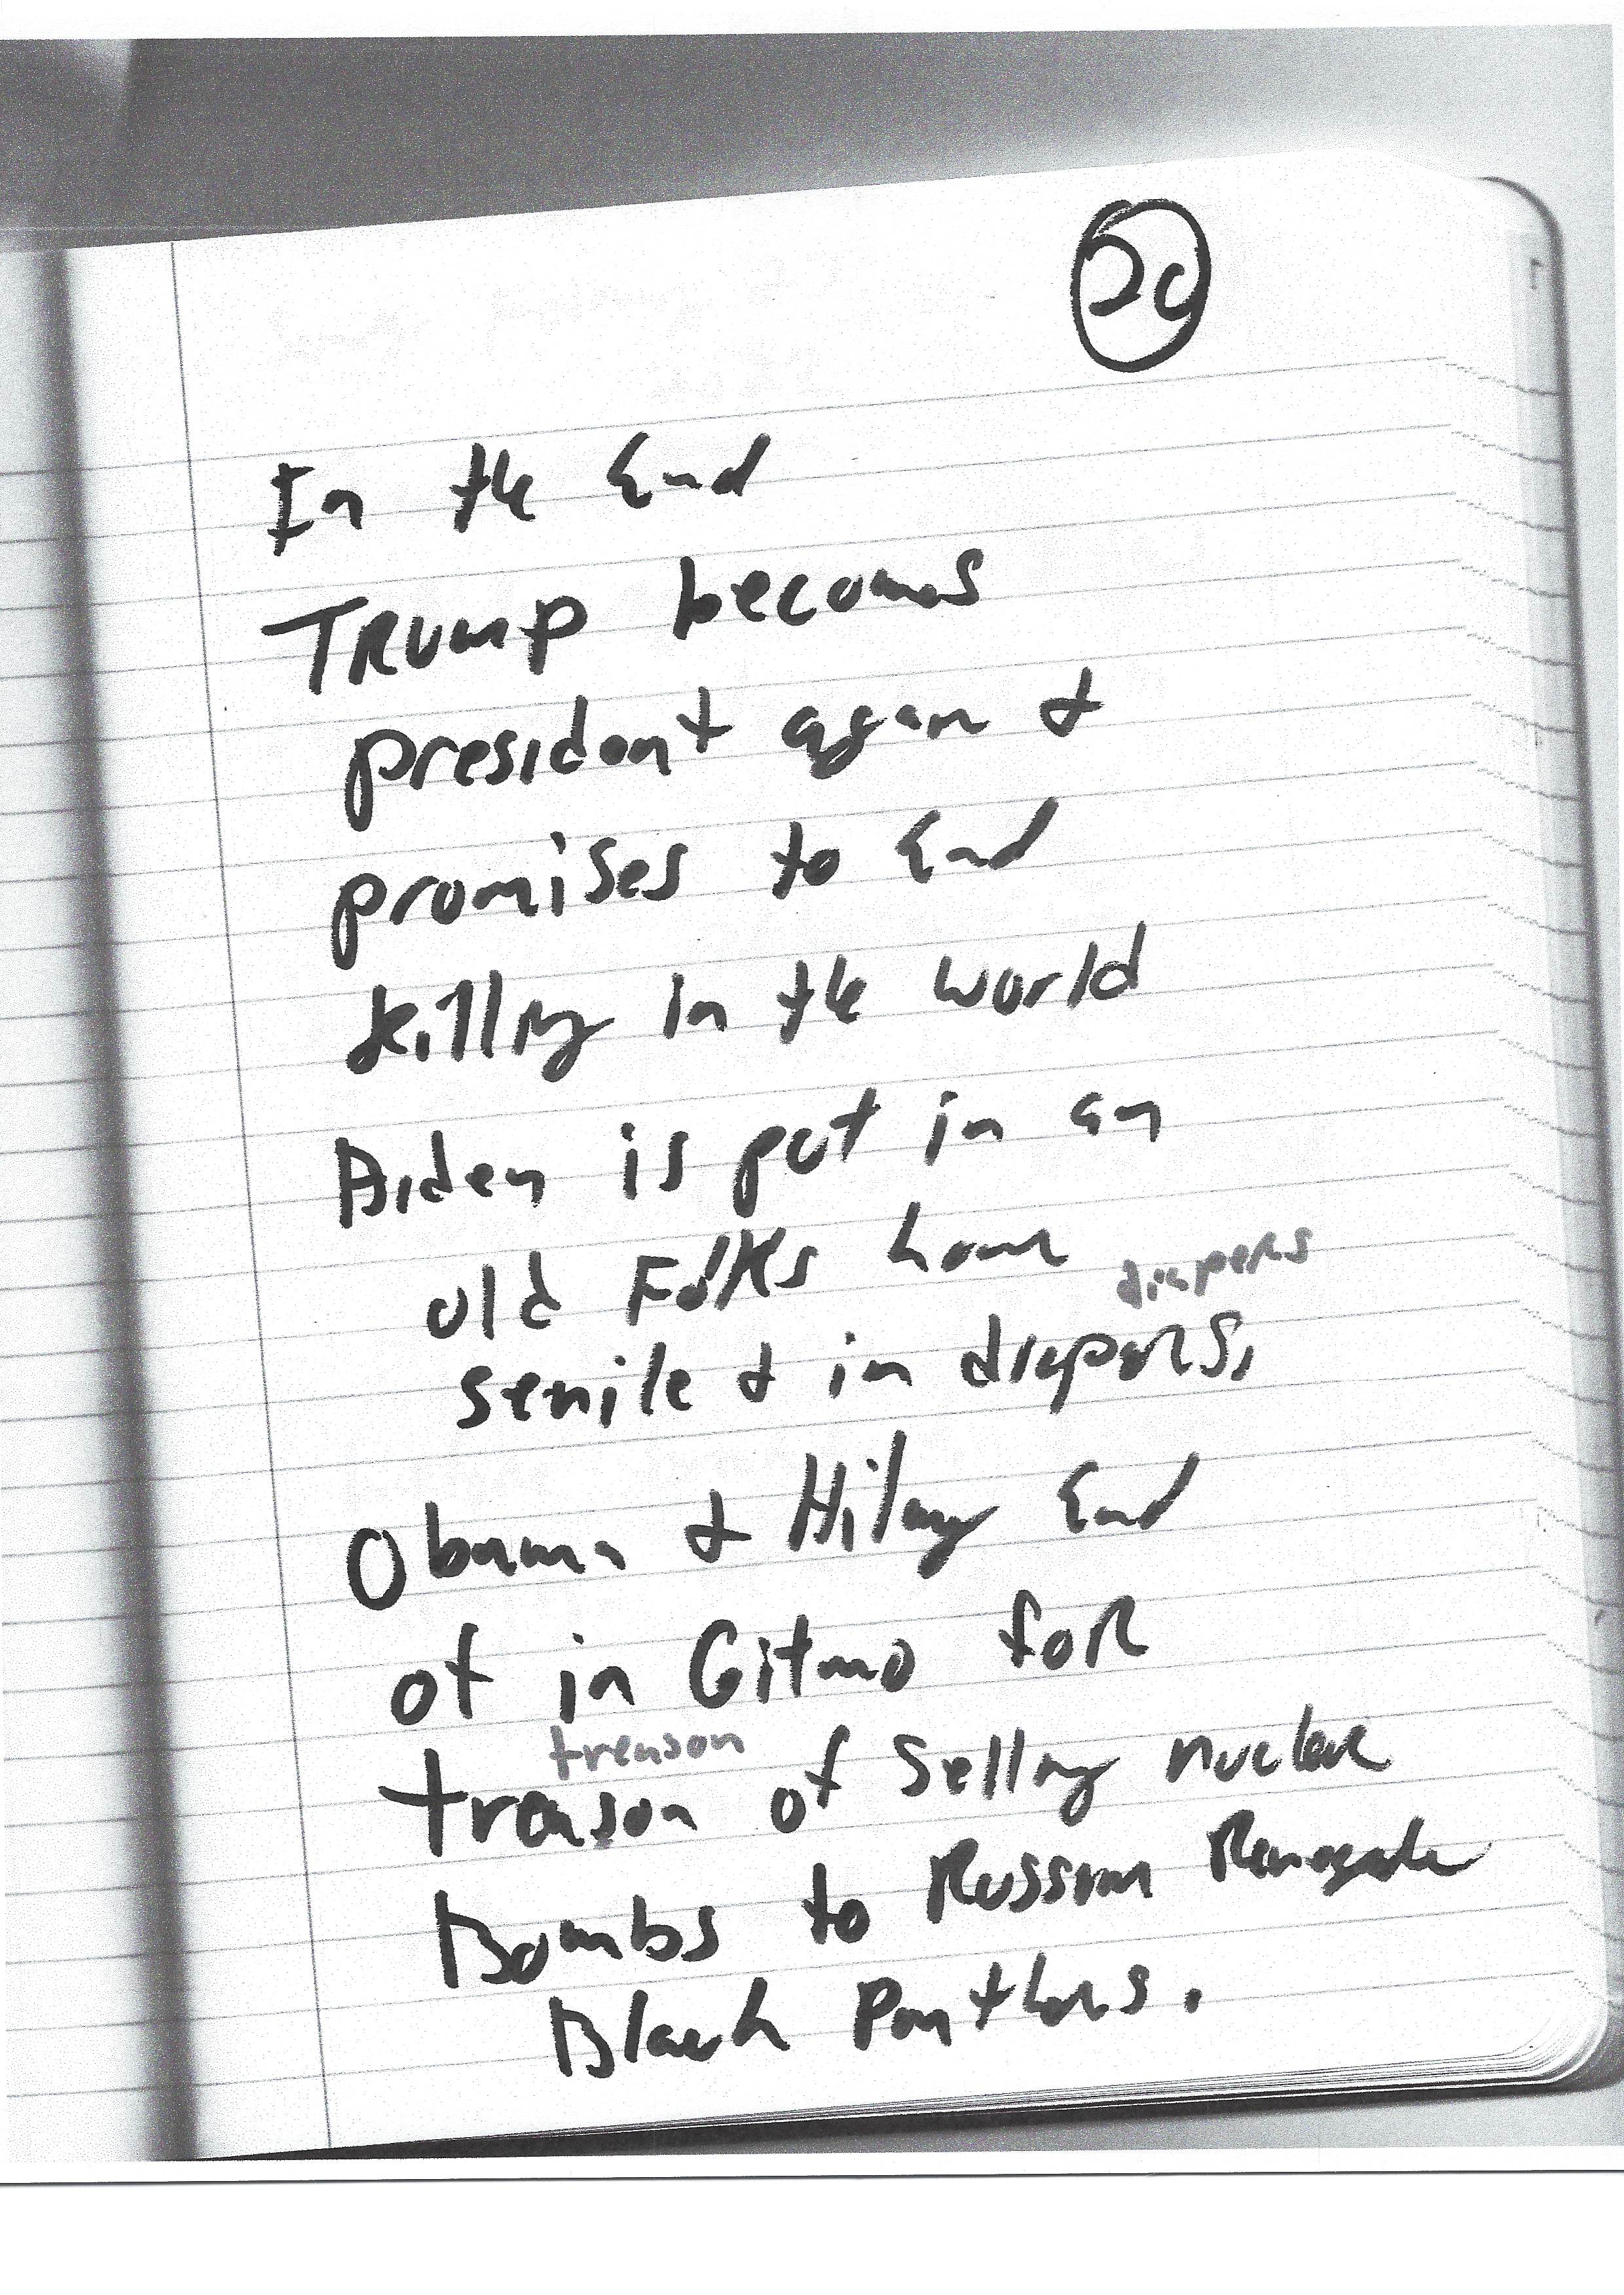 20
In the End
TRump becomes
president again &
promises to End
killing in the world
Biden is put in an
old Folks home
diapers
senile & in diapers,
Obama & Hilary End
of in Gitmo foR
treason
treason of Selling nuclear
Bombs to Russian Renegade
Black Panthers.